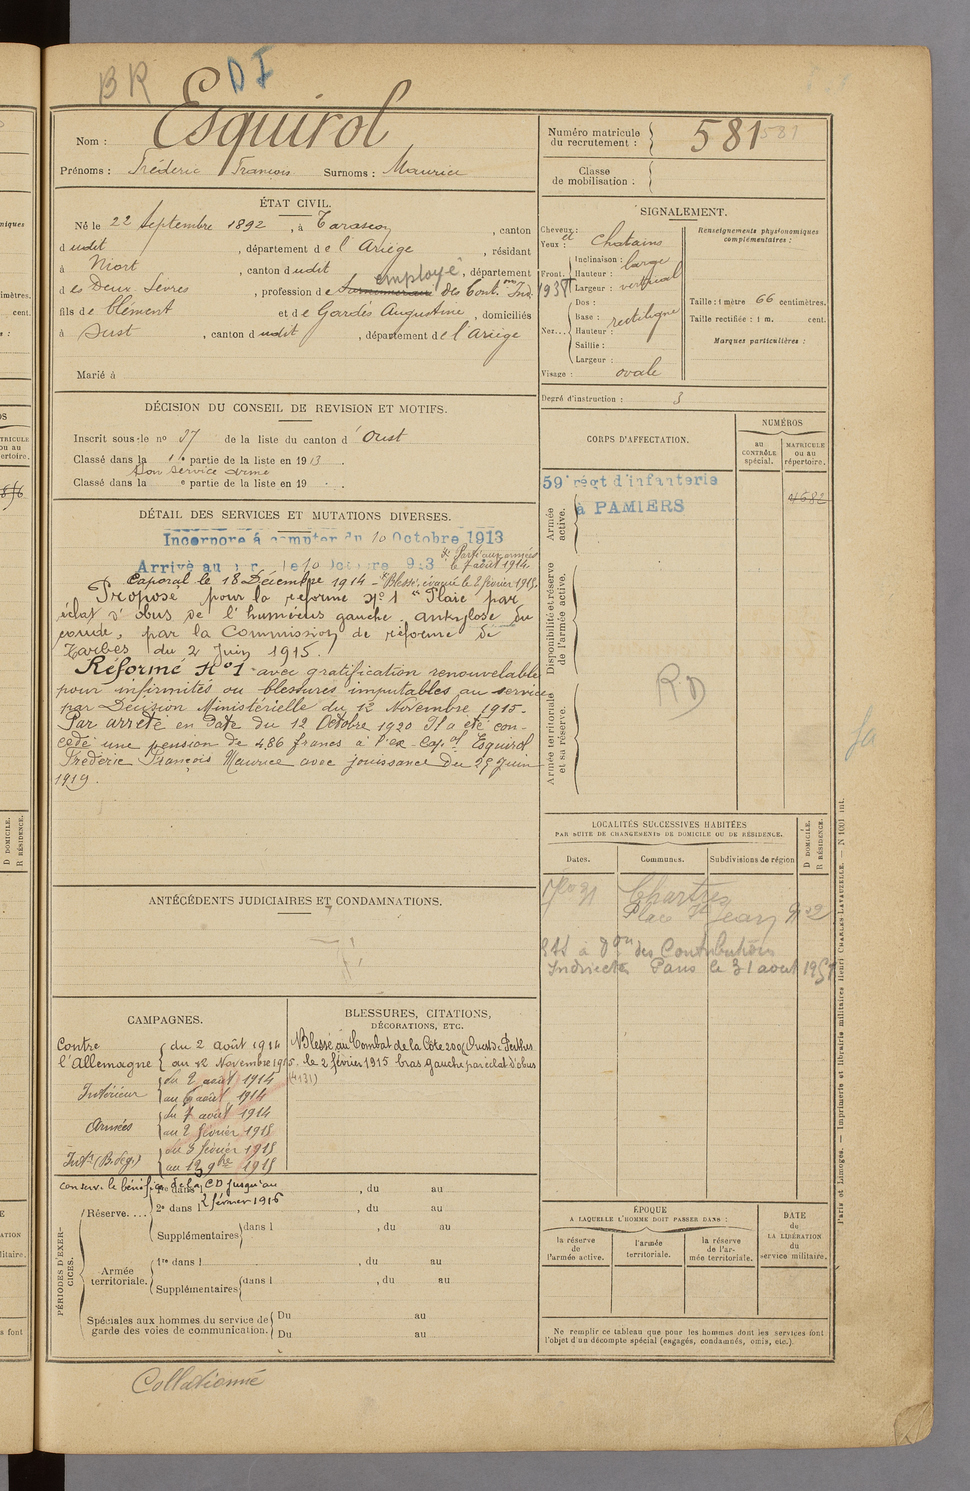 BR DI
Nom : Esquirol
Prénoms : Fréderic François Surnoms : Maurice
ÉTAT CIVIL.
Né le 22 Septembre 1892, à Tarascon, canton
dudit, département de l'Ariège, résidant
à Niort, canton dudit, département
des Deux-Sèvres, profession de employé des Cont. Ind.
fils de Clément et de Gardès Augustine, domiciliés
à Oust, canton dudit, département de l'Ariège
Marié à
DÉCISION DU CONSEIL DE REVISION ET MOTIFS.
Inscrit sous le no 37 de la liste du canton d'Oust
Classé dans la 1re partie de la liste en 1913.
Bon service armé
Classé dans la e partie de la liste en 19
DÉTAIL DES SERVICES ET MUTATIONS DIVERSES.
Incorporé à compter du 10 Octobre 1913
Parti aux armées
le 7 août 1914.
Arrivé au le 10 Octobre 1913
Caporal le 18 Décembre 1914 - Blessé, évacué le 2 février 1915.
Proposé pour la réforme No 1 "Plaie par
éclat d'obus de l'humérus gauche. ankylose du
coude, par la Commission de réforme de
Tarbes du 2 Juin 1915.
Réformé No 1 avec gratification renouvelable
pour infirmités ou blessures imputables au service
par Décision Ministérielle du 12 Novembre 1915.
Par arrêté en date du 12 Octobre 1920 Il a été con-
cédé une pension de 486 francs à l'ex-Cap.al Esquirol
Fréderic François Maurice avec jouissance du 25 Juin
1919.
ANTÉCÉDENTS JUDICIAIRES ET CONDAMNATIONS.
CAMPAGNES.
Contre
l'Allemagne
du 2 août 1914
au 12 Novembre 1915.
Intérieur
du 2 août 1914
au 6 août 1914
Armées
du 7 août 1914
au 2 février 1915
Int.r (B. de g.)
du 3 février 1915
au 12 9bre 1915
BLESSURES, CITATIONS,
DÉCORATIONS, ETC.
Blessé au Combat de la Côte 200 (Ouest de Perthes
le 2 février 1915 bras gauche par éclat d'obus
conserve le bénéfice de la CD jusqu'au
2 février 1916
PÉRIODES D'EXERCICES.
Réserve.... 1re dans l , du au
2e dans l , du au
Supplémentaires dans l , du au
Armée
territoriale. 1re dans l , du au
Supplémentaires dans l , du au
Spéciales aux hommes du service de
garde des voies de communication. Du au
Du au
Collationné
Numéro matricule
du recrutement : 581 581
Classe
de mobilisation :
SIGNALEMENT.
Cheveux :
et
Yeux : Chatains
Front. Inclinaison : large
Hauteur : vertical
Largeur :
Nez... Dos :
Base : rectiligne
Hauteur :
Saillie :
Largeur :
Visage : ovale
Renseignements physionomiques
complémentaires :
Taille : 1 mètre 66 centimètres.
Taille rectifiée : 1 m. cent.
Marques particulières :
Degré d'instruction : 3
CORPS D'AFFECTATION.
NUMÉROS
AU
CONTRÔLE
spécial.
MATRICULE
ou au
répertoire.
Armée
active.
59e régt d'infanterie
à PAMIERS
4682
Disponibilité et réserve
de l'armée active.
Armée territoriale
et sa réserve.
RD
LOCALITÉS SUCCESSIVES HABITÉES
PAR SUITE DE CHANGEMENTS DE DOMICILE OU DE RÉSIDENCE.
Dates. Communes. Subdivisions de région
D DOMICILE.
R RÉSIDENCE.
Chartres
Place St Jean
des Contributions
Indirectes Paris le 31 août
ÉPOQUE
A LAQUELLE L'HOMME DOIT PASSER DANS :
la réserve
de
l'armée active.
l'armée
territoriale.
la réserve
de l'ar-
mée territoriale.
DATE
de
LA LIBÉRATION
du
service militaire.
Ne remplir ce tableau que pour les hommes dont les services font
l'objet d'un décompte spécial (engagés, condamnés, omis, etc.).
Paris et Limoges. — Imprimerie et librairie militaires Henri CHARLES-LAVAUZELLE.